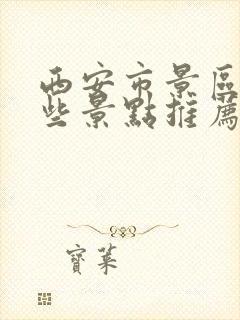 西安市景區
些景點推薦
寶葉